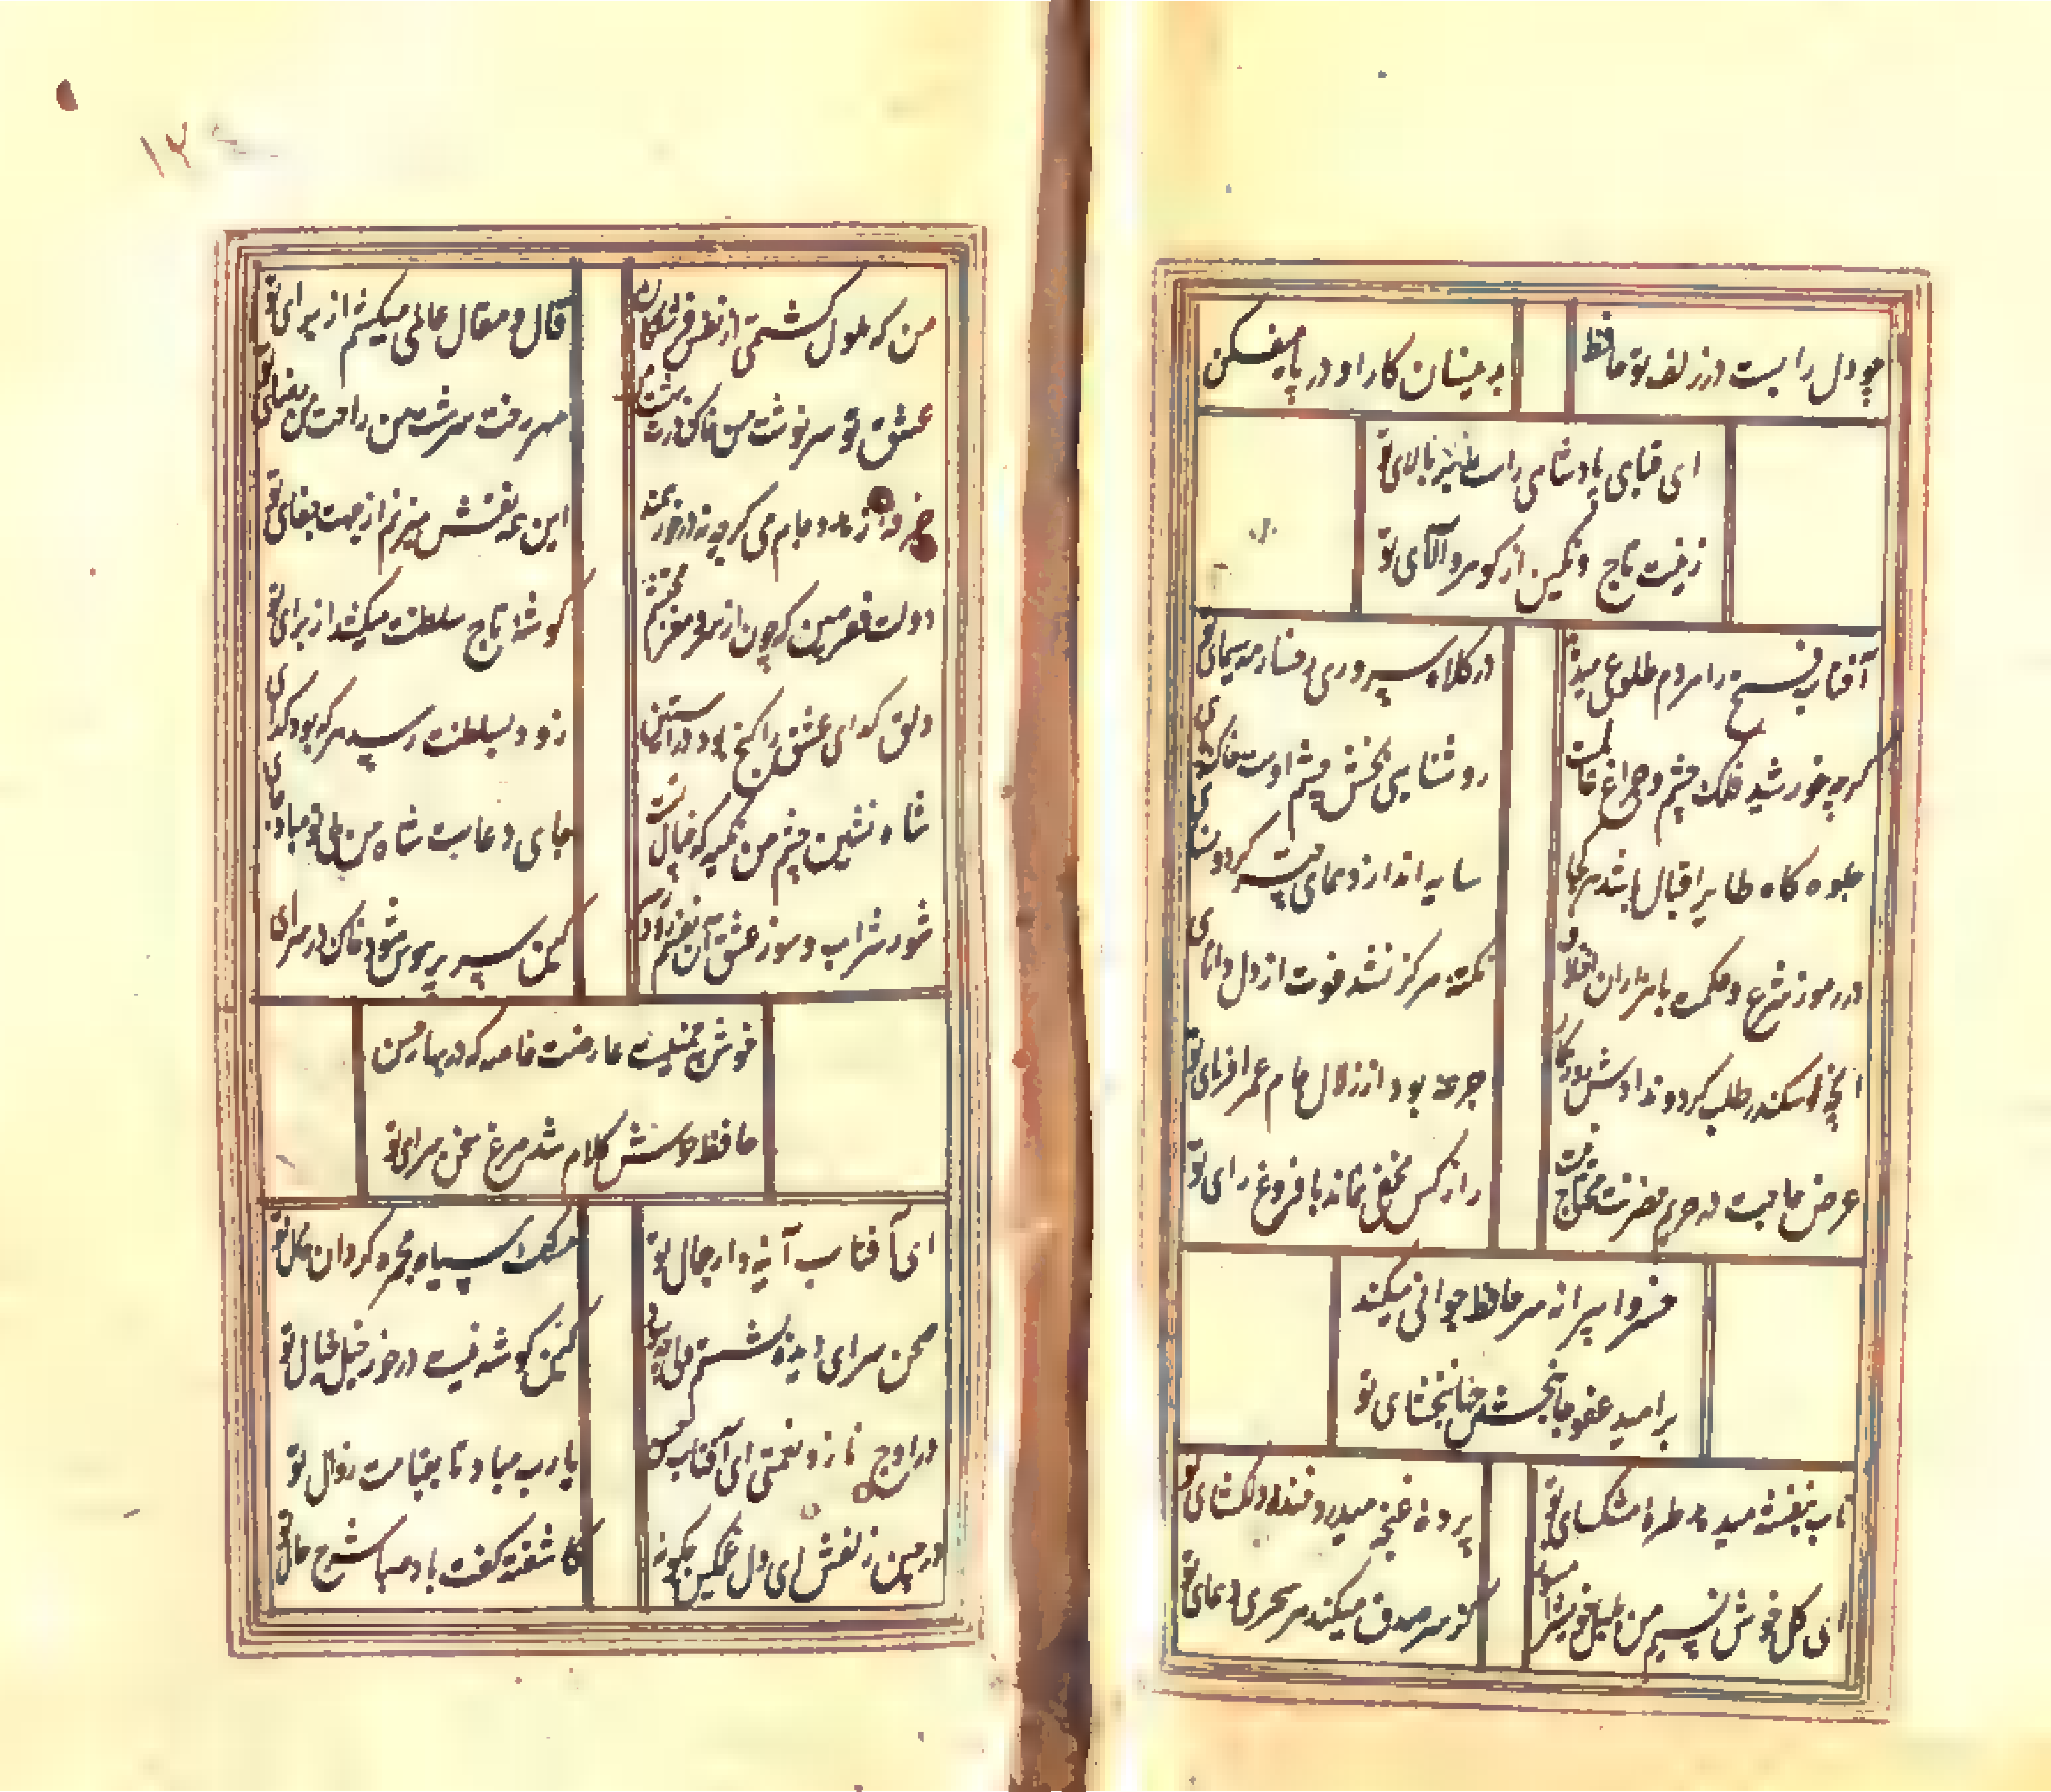 چو دل را بست در زلف تو حافظ
بدینسان کار او در پا میفکن
ای قبای پادشاهی راست بر بالای تو
زینت تاج و نگین از گوهر والای تو
آفتاب فتح را هر دم طلوعی میدهد
در کلاه سروری رخسار مه سیمای تو
گرچه خورشید فلک چشم و چراغ عالمست
روشنایی بخش چشم اوست خاک پای تو
جلوه گاه طایر اقبال باشد هر کجا
سایه اندازد همای چتر گردون سای تو
در رموز شرع و حکمت با هزاران اختلاف
نکته هرگز نشد فوت از دل دانای تو
آنچه اسکندر طلب کرد و ندادش روزگار
جرعه بود از زلال جام عمر افزای تو
عرض حاجت در حریم حضرتت محتاج نیست
راز کس مخفی نماند با فروغ رای تو
خسروا پیرانه سر حافظ جوانی میکند
بر امید عفو جانبخش
تاب بنفشه میدهد طره مشکسای تو
پرده غنچه میدرد خنده دلگشای تو
ای گل خوش نسیم من بلبل خویش را مسوز
کز سر صدق میکند هر سحری دعای تو
من که ملول گشتمی از نفس فرشتگان
قال و مقال عالمی میکشم از برای تو
عشق تو سرنوشت من خاک درت بهشت من
مهر رخت سرشت من راحت من
خرقه زهد و جام می گرچه نه درخور همند
این همه نقش میزنم از جهت بقای تو
دولت فقر بین که چون از سر فقر
گوشه تاج سلطنت میکشد از برای تو
دلق گدای عشق را گنج بود در آستین
زود بسلطنت رسد هر که بود گدای
شاه نشین چشم من تکیه گه خیال تست
جای دعاست شاه من بی تو مباد جای
شور شراب و سوز عشق آن نفسم رود
کین سر پر هوس شود خاک در سرای
خوش چمنیست عارضت خاصه که در بهار حسن
حافظ خوش کلام شد مرغ سخن سرای تو
ای آفتاب آینه دار جمال تو
مشک سیاه مجمره گردان خال تو
صحن سرای دیده بشستم ولی چه سود
کین گوشه نیست درخور خیل خیال تو
در اوج ناز و نعمتی ای آفتاب حسن
یا رب مباد تا بقیامت زوال تو
در چین زلفش ای دل غمگین چگونه
کاشفته گفت باد صبا شرح حال تو